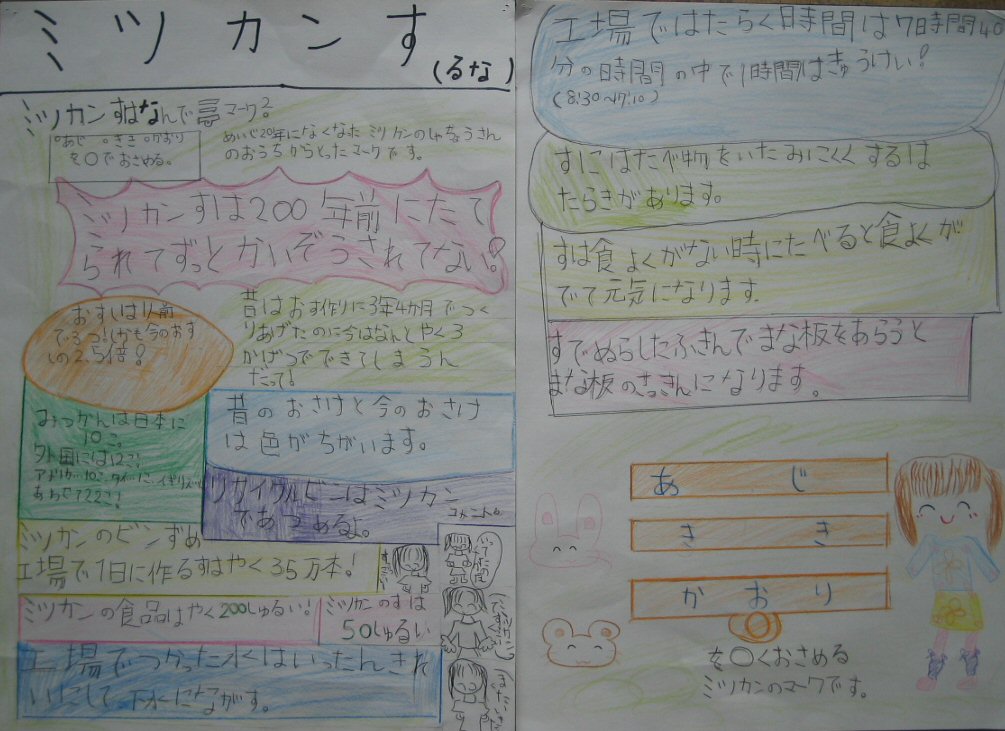 ミツカンす
(るな)
ミツカンすはなんで マーク?
°あじ °きき °かおり
を〇でおさめる。
めいじ20年になくなた ミツカンのしゃちょうさん
のおうちからとったマークです。
ミツカンすは200年前にたて
られてずっとかいぞうされてない!
おすしは以前
で3つ!しかも今のおす
しの2.5倍!
昔はお す作りに3年4カ月でつく
りあげたのに今はなんとやく3
かげつでできてしまうん
だって!
みつかんは日本に
10こ。
外国には12こ!
あわせて22こ!
昔のおさけと今のおさけ
は色がちがいます。
リサイクルビンはミツカン
であつめるよ。
ミツカンのビンずめ
工場で1日に作るすはやく35万本!
ミツカンの食品はやく200しゅるい!
ミツカンのすは
50しゅるい
工場でつかった水はいったんきれ
いにして、下水にながす。
工場ではたらく時間は7時間40
分の時間の中で1時間はきゅうけい!
(8:30〜17:10)
すにはたべ物をいたみにくくするは
たらきがあります。
すは食よくがない時にたべると食よくが
でて元気になります.
すでぬらしたふきんでまな板をあらうと
まな板のさっきんになります。
あじ
きき
かおり
を〇くおさめる
ミツカンのマークです。